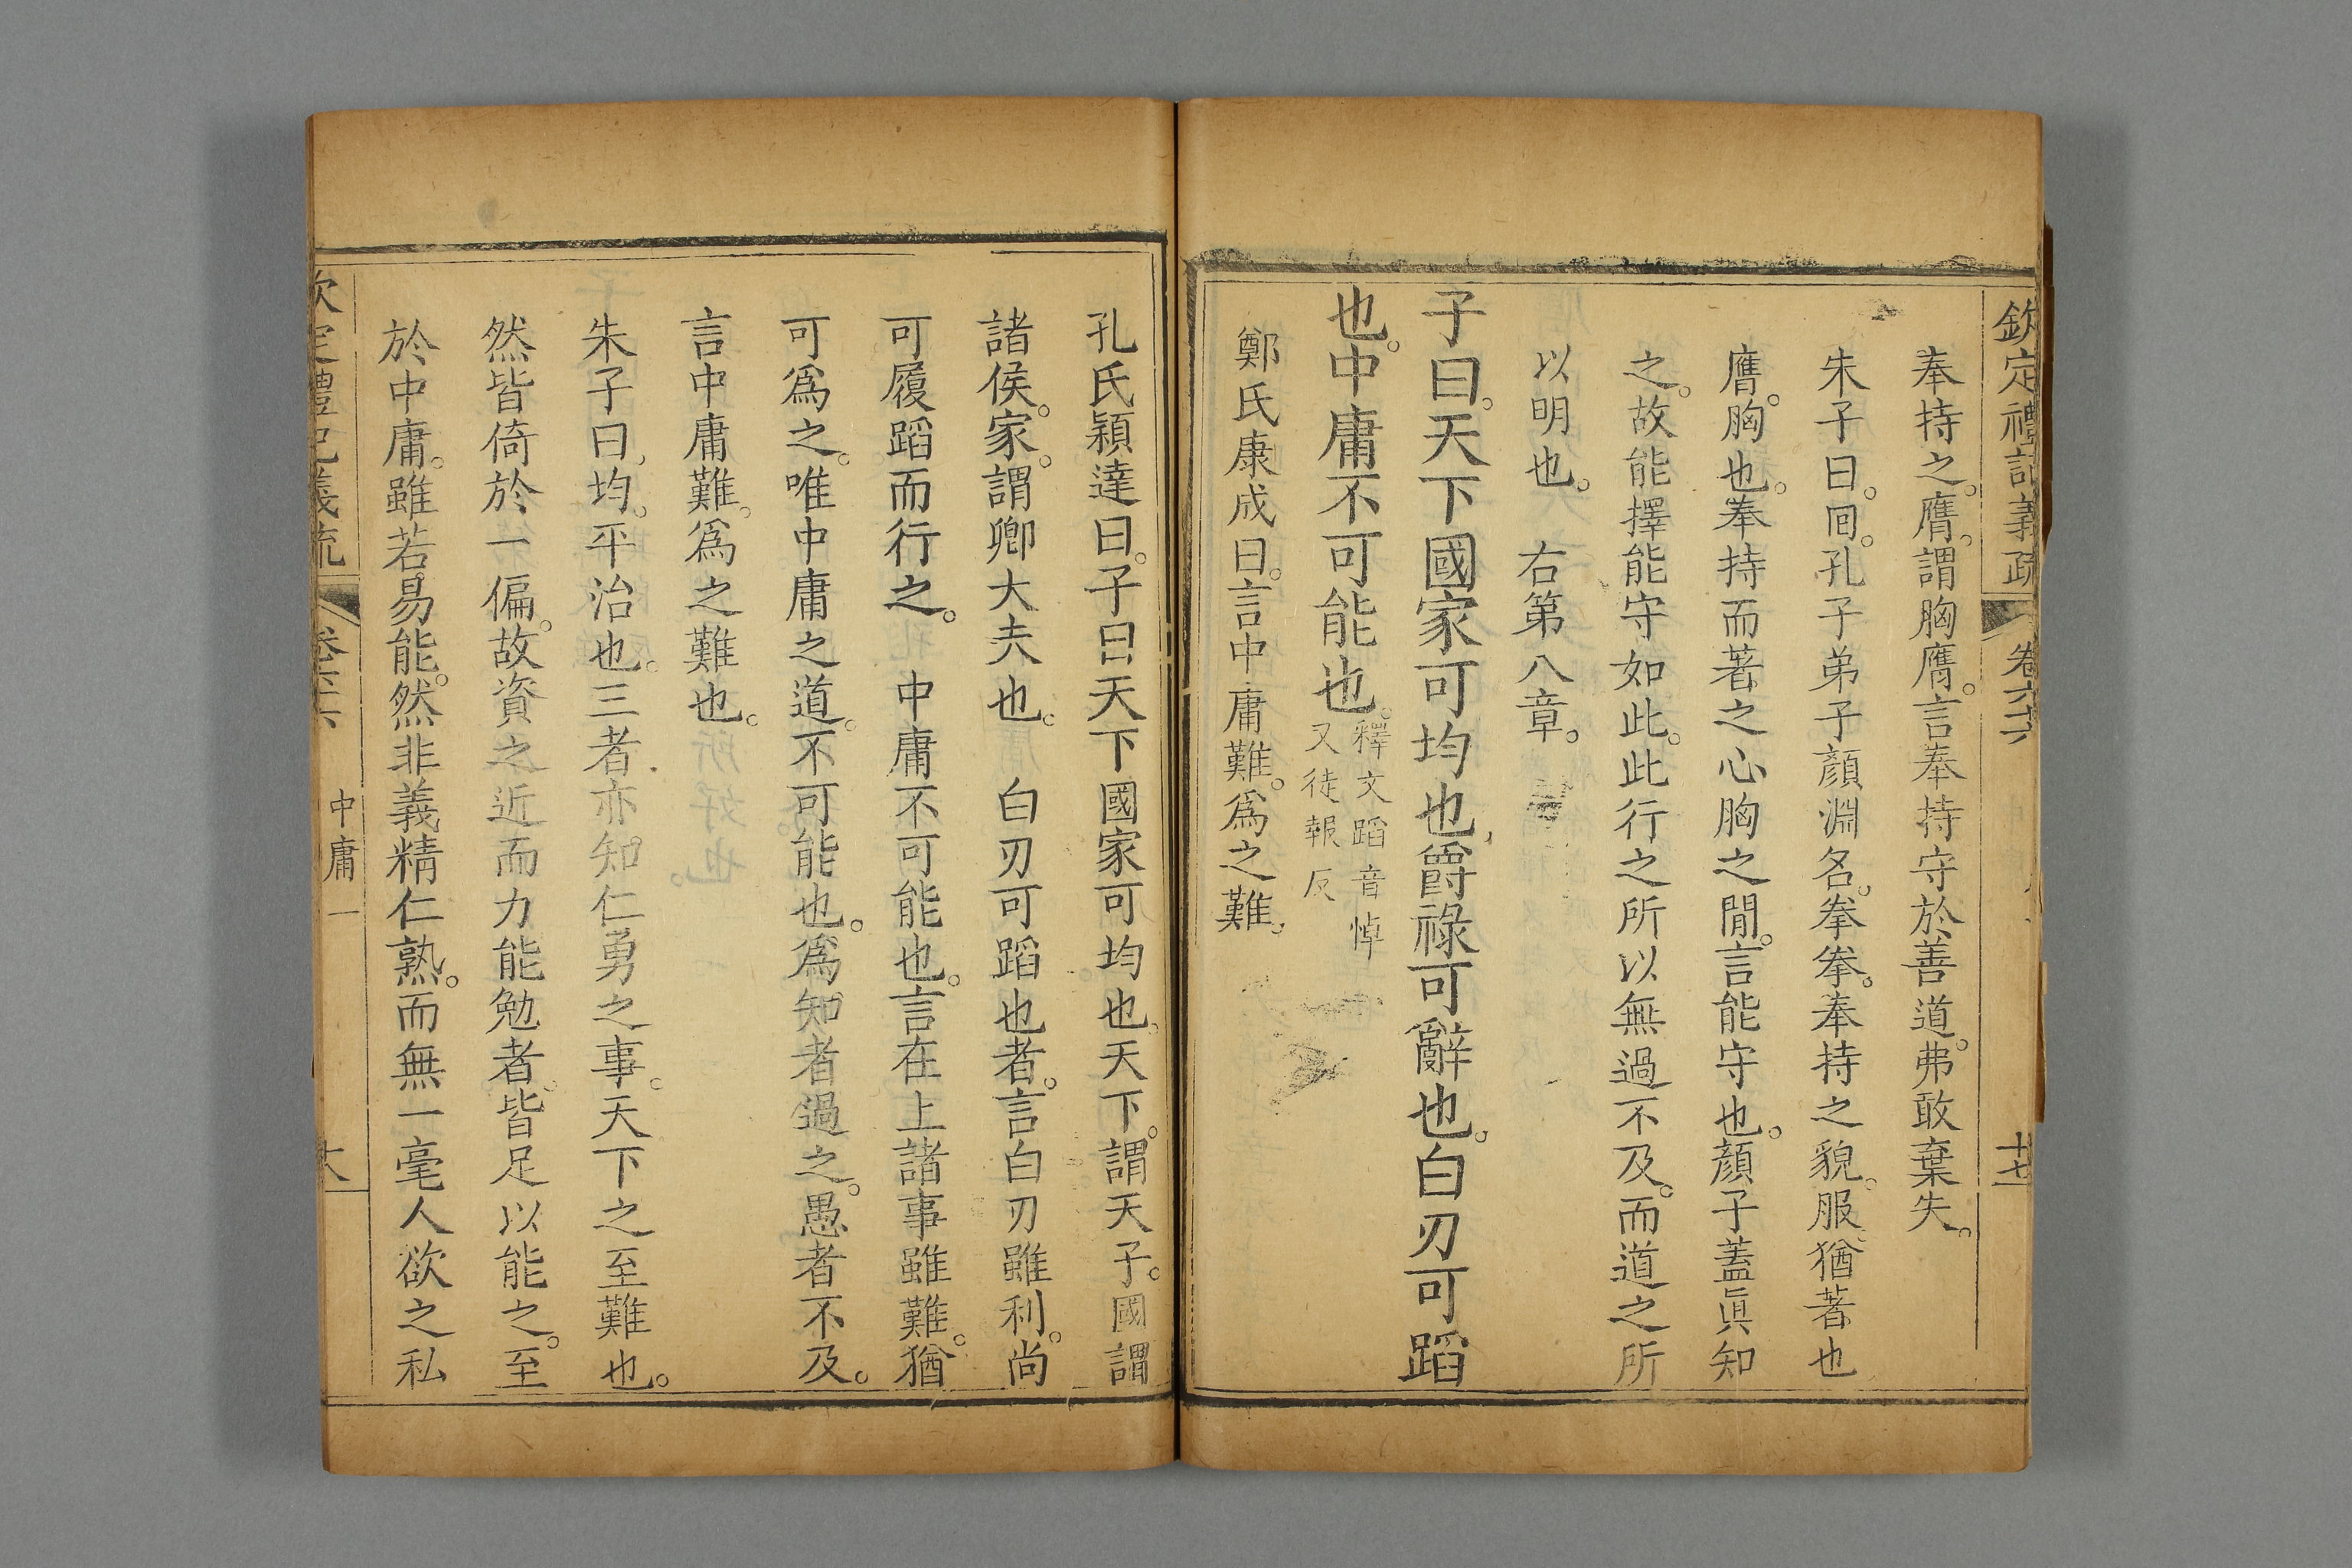 欽定禮記義疏 卷六十六 十七
奉持之。膺。謂胸膺。言奉持守於善道。弗敢棄失。
朱子曰。回。孔子弟子顏淵名。拳拳。奉持之貌。服。猶著也
膺。胸也。奉持而著之心胸之閒。言能守也。顏子蓋眞知
之。故能擇能守如此。此行之所以無過不及。而道之所
以明也。 右第八章。
子曰。天下國家可均也。爵祿可辭也。白刃可蹈
也。中庸不可能也。
釋文蹈音悼
又徒報反
鄭氏康成曰。言中庸難。爲之難。
孔氏穎達曰。子曰天下國家可均也。天下。謂天子。國謂
諸侯。家。謂卿大夫也。 白刃可蹈也者。言白刃雖利。尚
可履蹈而行之。 中庸不可能也。言在上諸事雖難。猶
可爲之。唯中庸之道。不可能也。爲知者過之。愚者不及。
言中庸難。爲之難也。
朱子曰。均。平治也。三者亦知仁勇之事。天下之至難也。
然皆倚於一偏。故資之近而力能勉者。皆足以能之。至
於中庸。雖若易能。然非義精仁熟。而無一毫人欲之私
欽定禮記義疏 卷六十六 中庸一 十八